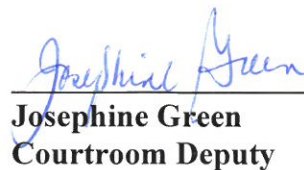 Josephine Green
Josephine Green
Courtroom Deputy